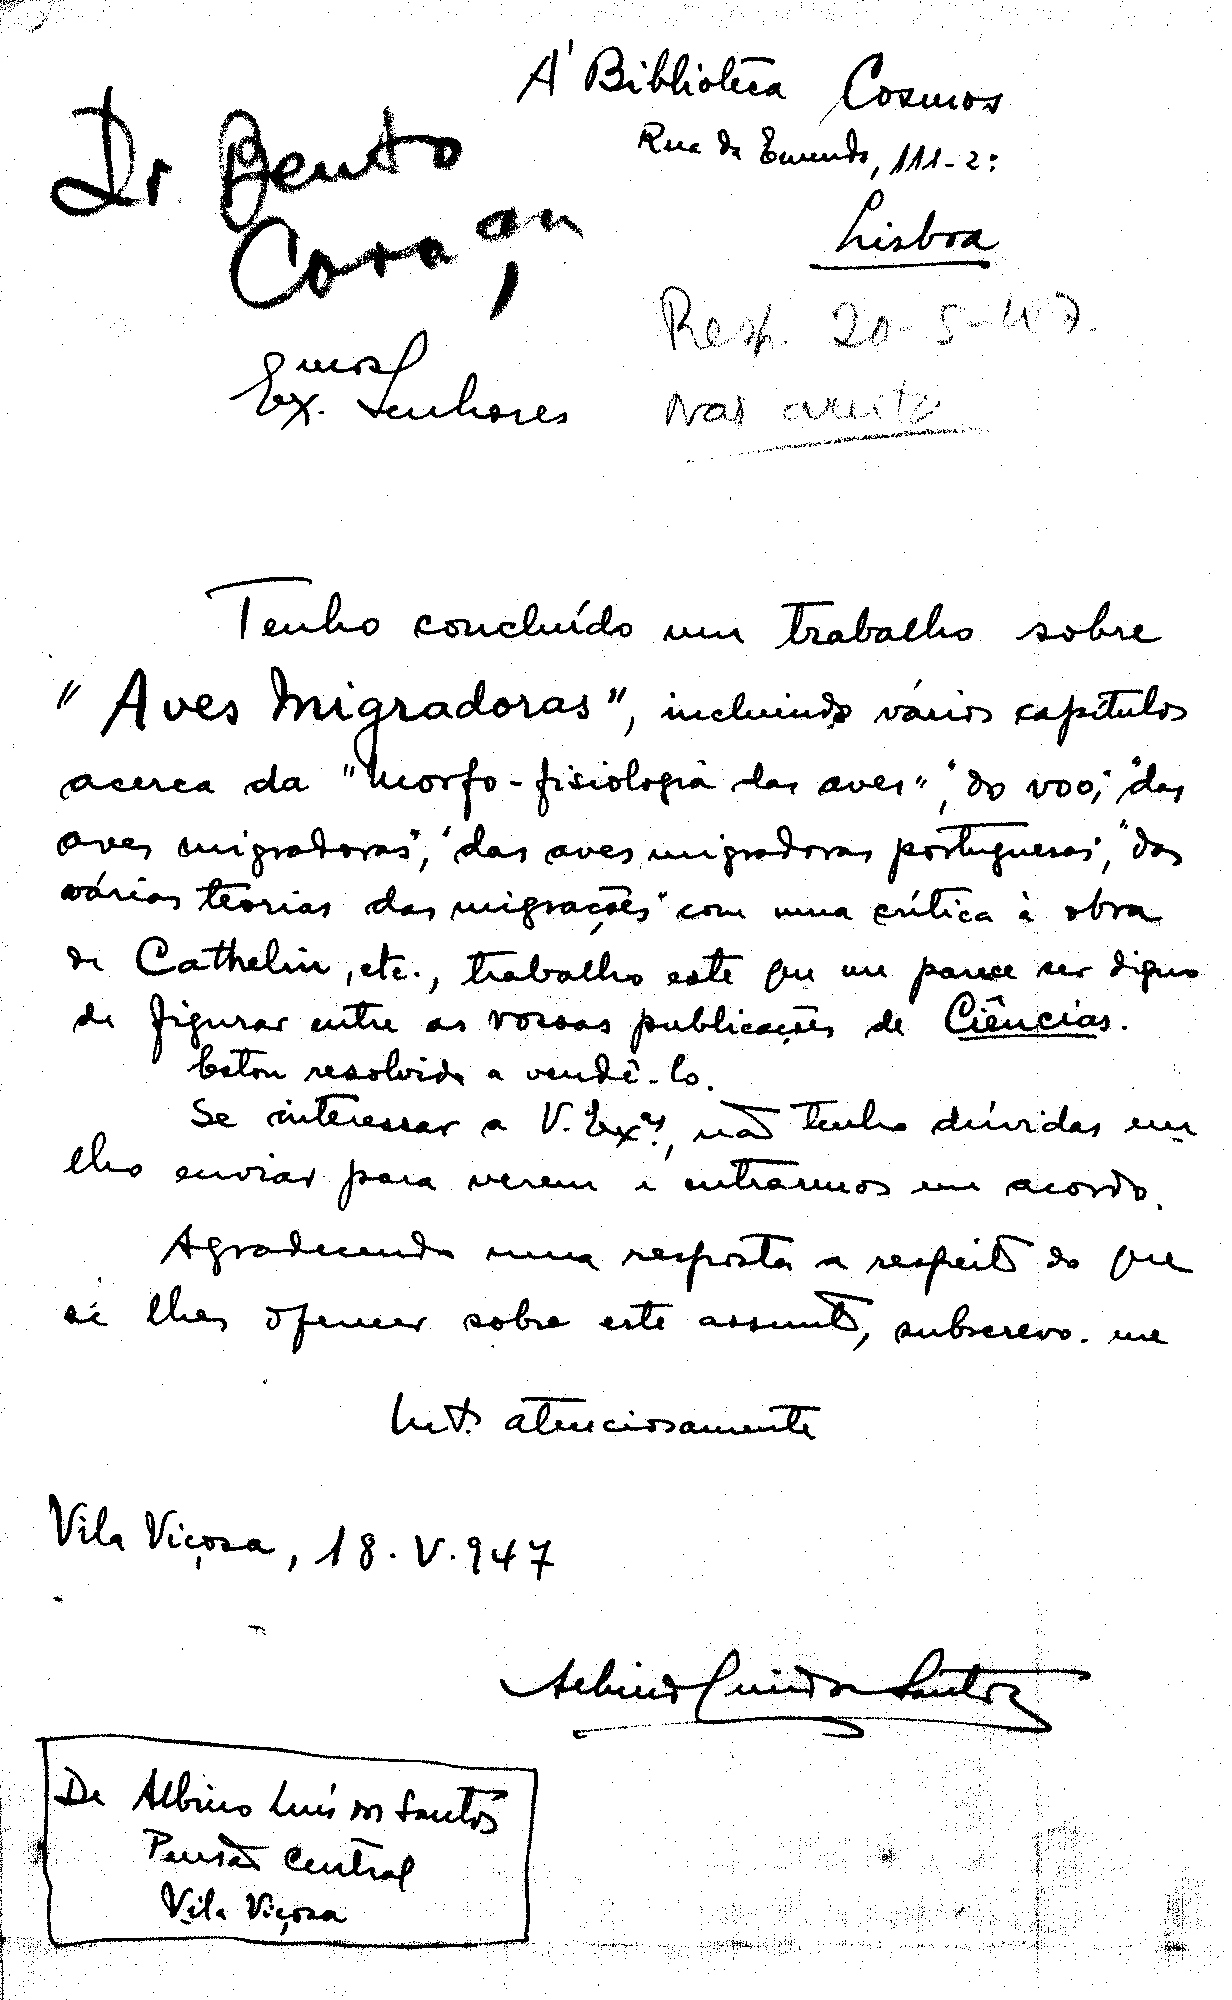 À Biblioteca Cosmos
Rua da Emenda, 111-2º
Lisboa
Dr. Bento
Caraça
Resp. 20-5-47.
Não aceite
Ex.mos Senhores
Tenho concluído um trabalho sobre
"Aves Migradoras", incluindo vários capítulos
acerca da "Morfo-fisiologia das aves", "do voo", "das
aves migradoras", "das aves migradoras portuguesas", "das
várias teorias das migrações" com uma crítica à obra
de Cathelin, etc., trabalho este que me parece ser digno
de figurar entre as vossas publicações de Ciências.
Estou resolvido a vendê-lo.
Se interessar a V. Ex.as, não tenho dúvidas em
lho enviar para verem e entrarmos em acordo.
Agradecendo uma resposta a respeito do que
se lhes oferecer sobre este assunto, subscrevo-me
Mt.º atenciosamente
Vila Viçosa, 18.V.947
Albino Luís dos Santos
De Albino Luís dos Santos
Pensão Central
Vila Viçosa